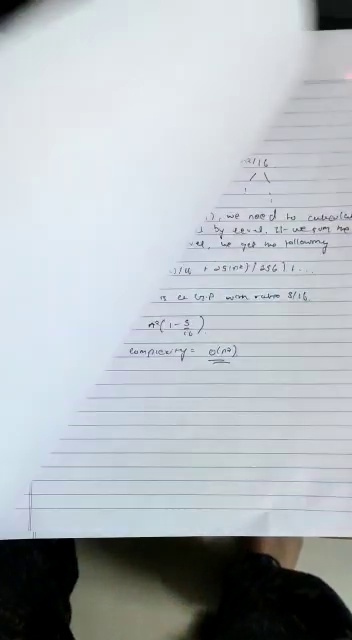 /16
), we need to calculate
by level. If we sum the
, we get the following
+ 25(n²)/256) + ...
is a G.P with ratio 5/16
n²(1 - 5/16)
complexity = O(n²)